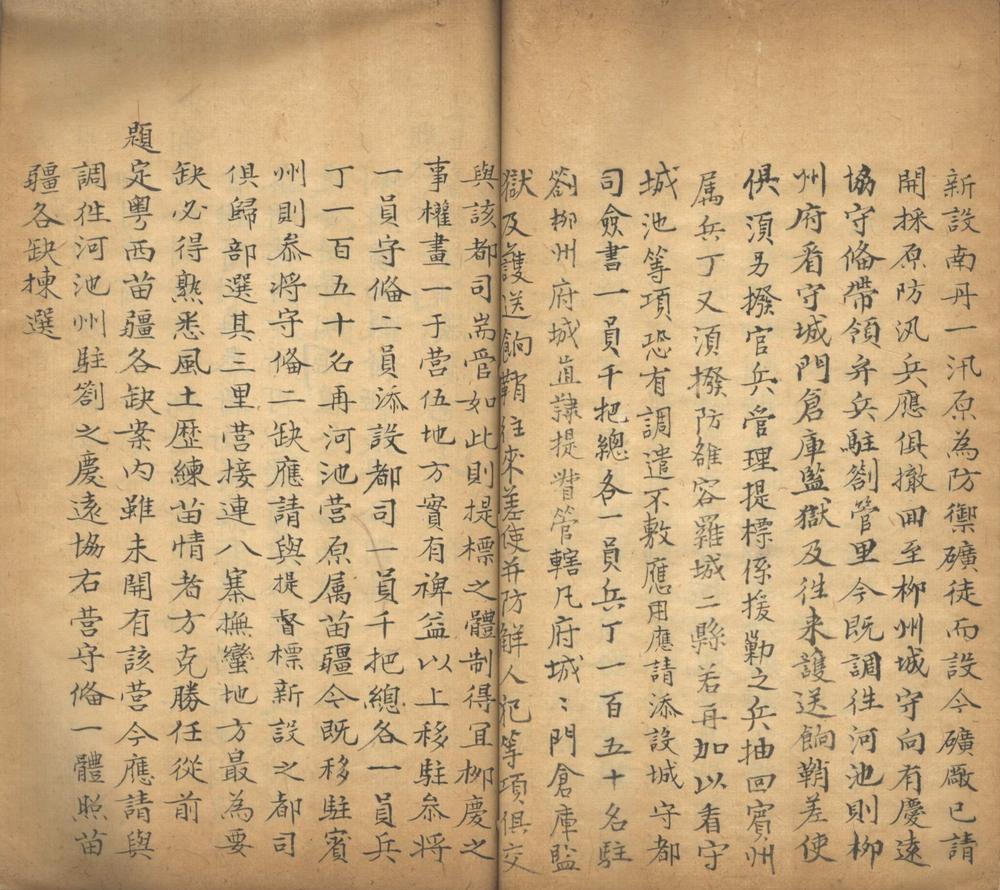 新設南丹一汛原為防禦礦徒而設今礦廠已請
開採原防汛兵應俱撤回至柳州城守向有慶遠
協守俻帶領弁兵駐劄管里今既調徃河池則柳
州府看守城門倉庫監獄及徃来護送餉鞘差使
俱須另撥官兵管理提標係援勦之兵抽回賓州
属兵丁又須撥防雒容羅城二縣若再加以看守
城池等項恐有調遣不敷應用應請添設城守都
司僉書一員千把總各一員兵丁一百五十名駐
劄柳州府城直隷提督管轄凡府城〻門倉庫監
獄及護送餉鞘往來差使并防觧人犯等項俱交
與該都司耑管如此則提標之體制得宜柳慶之
事權畫一于营伍地方實有裨益以上移駐叅將
一員守俻二員添設都司一員千把總各一員兵
丁一百五十名再河池营原属苗疆今既移駐賓
州則叅將守俻二缺應請與提督標新設之都司
俱歸部選其三里营接連八寨撫蠻地方最為要
缺必得熟悉風土歴練苗情者方克勝任從前
題定粵西苗疆各缺案内雖未開有該营今應請與
調徃河池州駐劄之慶遠協右营守俻一體照苗
疆各缺揀選